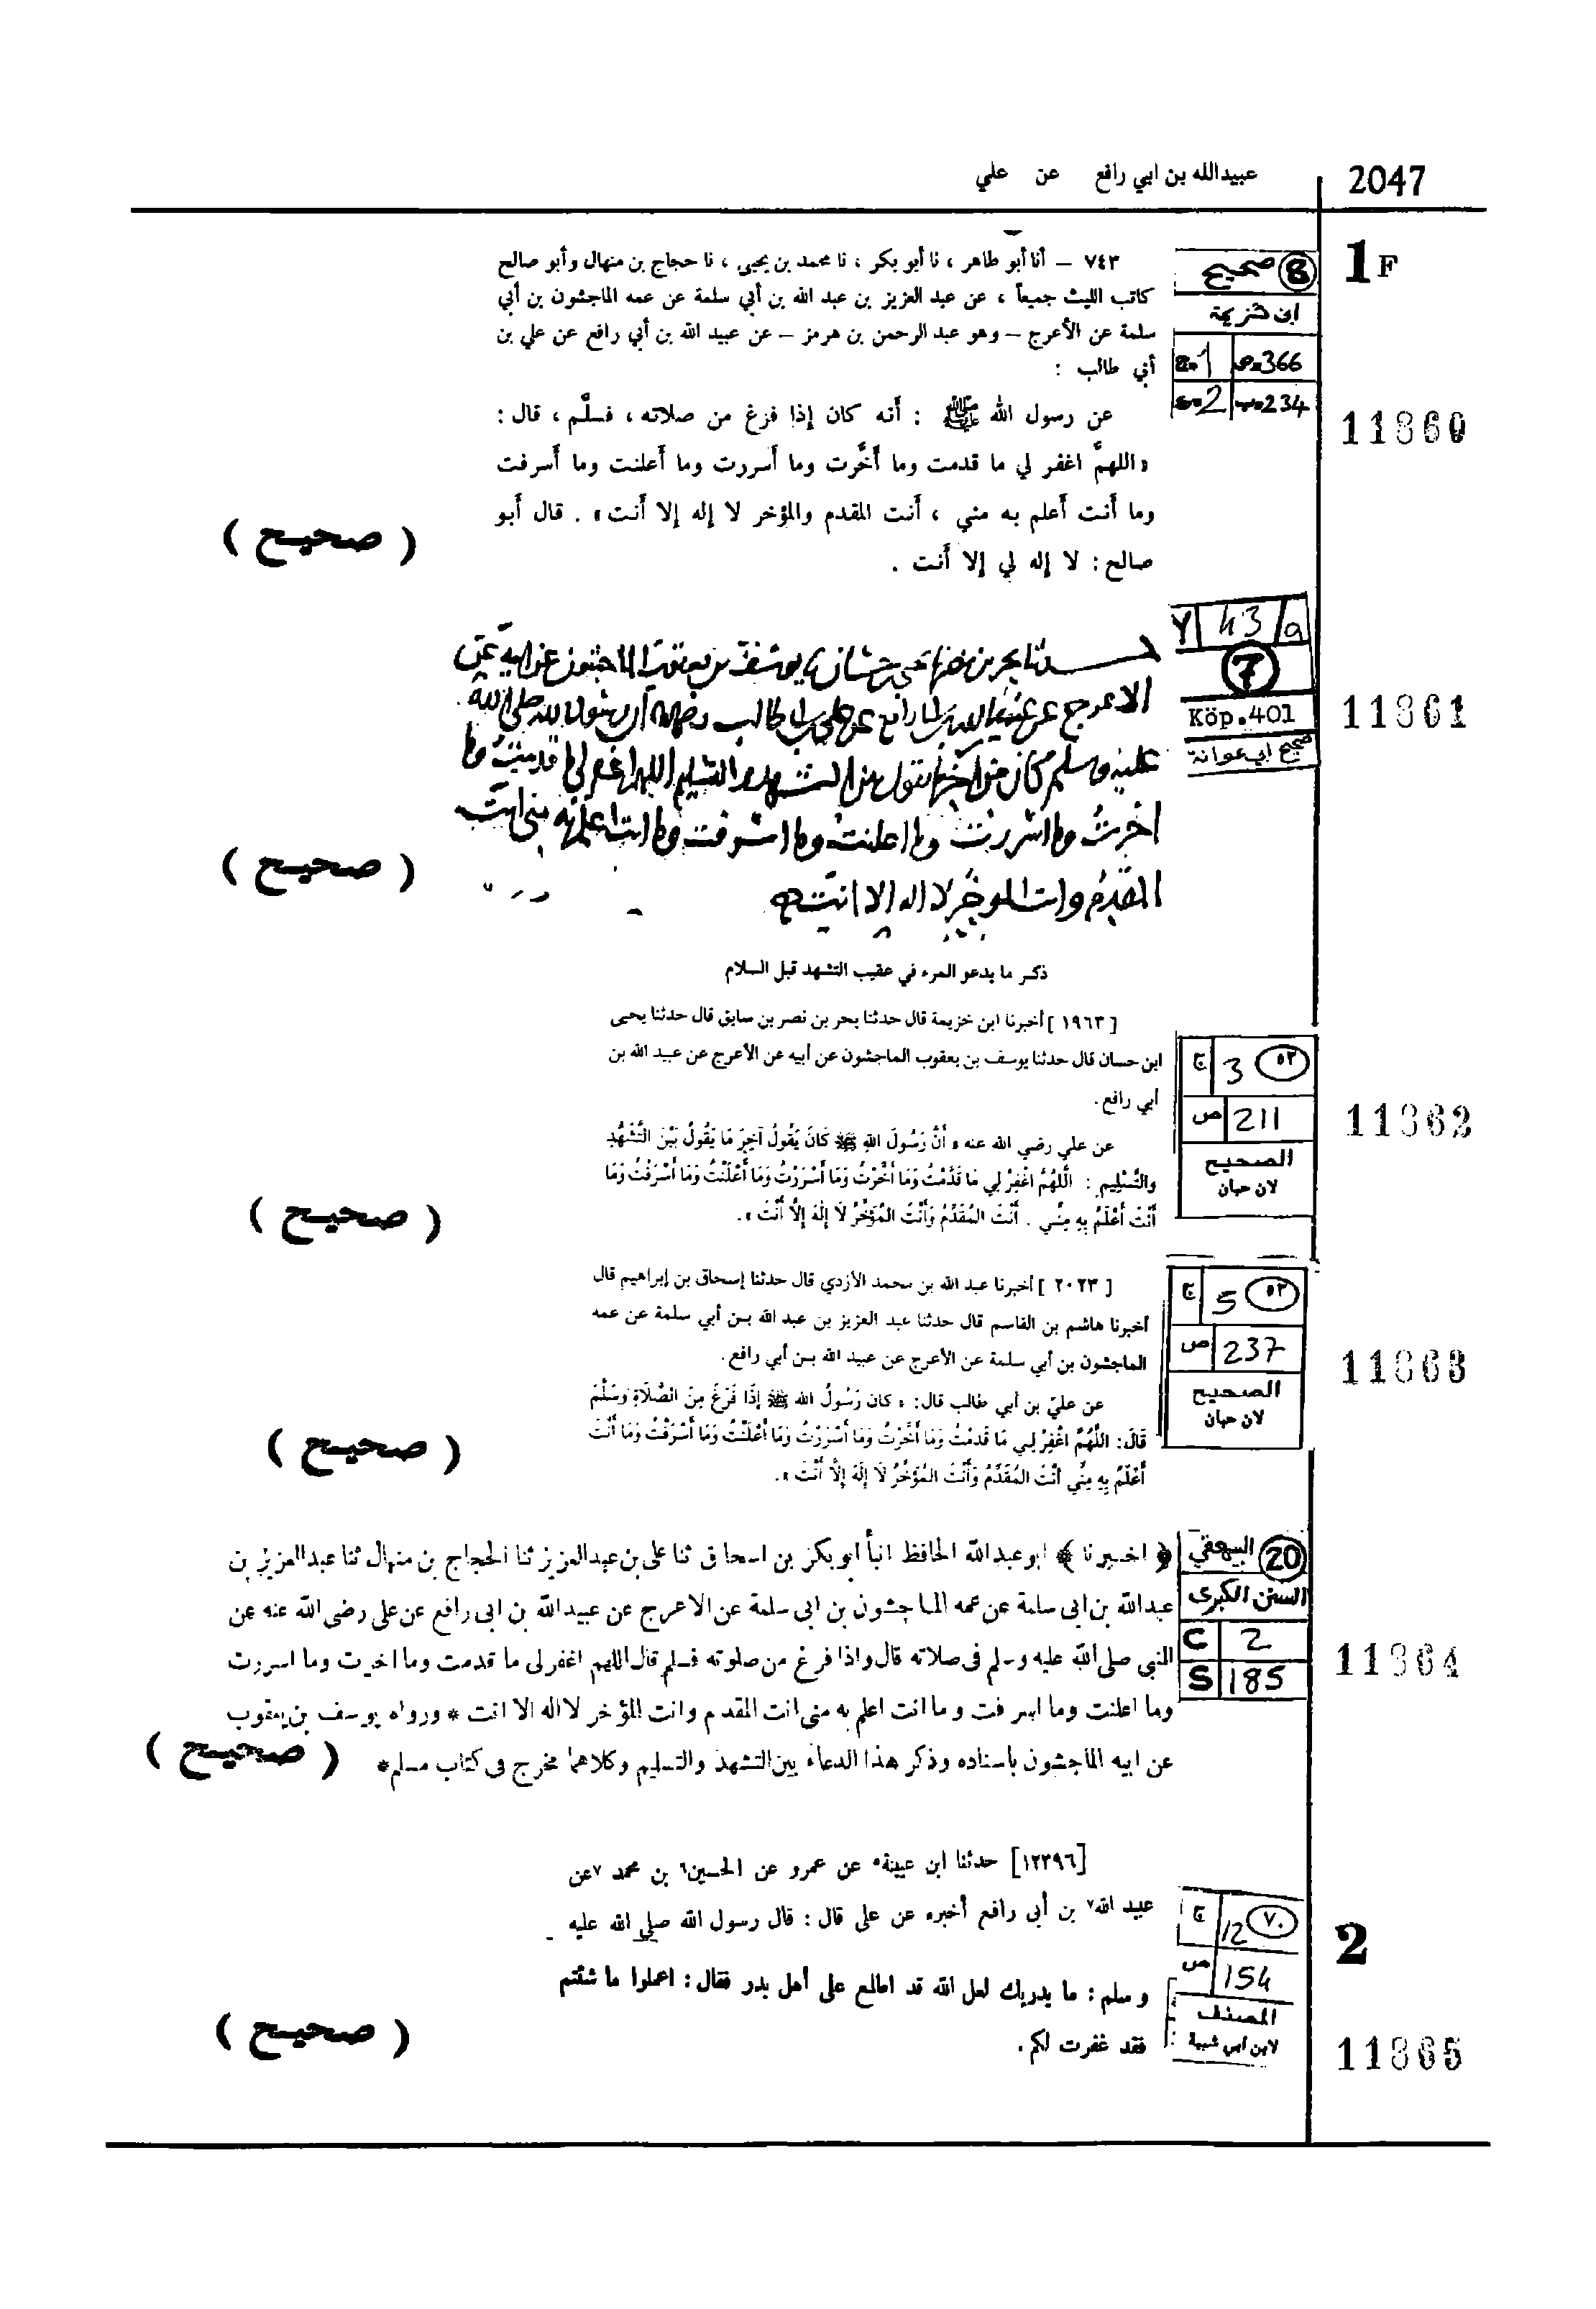 2047
عبيدالله بن ابي رافع عن علي
1 F
8 صحيح
ابن خزيمة
366
234
2
11860
٧٤٣ – أنا أبو طاهر ، نا أبو بكر ، نا محمد بن يحيى ، نا حجاج بن منهال وأبو صالح
كاتب الليث جميعاً ، عن عبد العزيز بن عبد الله بن أبي سلمة عن عمه الماجشون بن أبي
سلمة عن الأعرج – وهو عبد الرحمن بن هرمز – عن عبيد الله بن أبي رافع عن علي بن
أبي طالب :
عن رسول الله ﷺ : أنه كان إذا فرغ من صلاته ، فسلَّم ، قال :
« اللهمَّ اغفر لي ما قدمت وما أَخَّرت وما أَسررت وما أَعلنت وما أَسرفت
وما أَنت أَعلم به مني ، أَنت المقدم والمؤخر لا إله إلا أَنت » . قال أَبو
صالح : لا إله لي إلا أَنت .
( صحيح )
43/a
7
Köp.401
صحيح ابي عوانة
11861
الاعرج عن عبيد الله بن ابي رافع عن علي بن ابي طالب رضي الله عنه ان رسول الله صلى الله
اخرت وما اسررت وما اعلنت وما اسرفت وما انت اعلم به مني انت
المقدم وانت المؤخر لا اله الا انت
( صحيح )
ذكر ما يدعو المرء في عقيب التشهد قبل السلام
٥٢ 3 ج
211 ص
الصحيح
لابن حبان
11862
[ ١٩٦٣ ] أخبرنا ابن خزيمة قال حدثنا بحر بن نصر بن سابق قال حدثنا يحيى
ابن حسان قال حدثنا يوسف بن يعقوب الماجشون عن أبيه عن الأعرج عن عبيد الله بن
أبي رافع.
عن علي رضي الله عنه « أَنَّ رَسُولَ اللهِ ﷺ كَانَ يَقُولُ آخِرَ مَا يَقُولُ بَيْنَ التَّشَهُّدِ
والتَّسْلِيمِ : اللَّهُمَّ اغْفِرْ لِي مَا قَدَّمْتُ وَمَا أَخَّرْتُ وَمَا أَسْرَرْتُ وَمَا أَعْلَنْتُ وَمَا أَسْرَفْتُ وَمَا
أَنْتَ أَعْلَمُ بِهِ مِنِّي . أَنْتَ المُقَدِّمُ وَأَنْتَ المُؤَخِّرُ لَا إِلَهَ إِلَّا أَنْتَ ».
( صحيح )
٥٢ 5 ج
237 ص
الصحيح
لابن حبان
11863
[ ٢٠٢٣ ] أخبرنا عبد الله بن محمد الأزدي قال حدثنا إسحاق بن إبراهيم قال
أخبرنا هاشم بن القاسم قال حدثنا عبد العزيز بن عبد الله بن أبي سلمة عن عمه
الماجشون بن أبي سلمة عن الأعرج عن عبيد الله بن أبي رافع.
عن عليّ بن أبي طالب قال: « كان رَسُولُ الله ﷺ إِذَا فَرَغَ مِنَ الصَّلَاةِ وَسَلَّمَ
قَالَ: اللَّهُمَّ اغْفِرْ لِي مَا قَدَّمْتُ وَمَا أَخَّرْتُ وَمَا أَسْرَرْتُ وَمَا أَعْلَنْتُ وَمَا أَسْرَفْتُ وَمَا أَنْتَ
أَعْلَمُ بِهِ مِنِّي أَنْتَ المُقَدِّمُ وَأَنْتَ المُؤَخِّرُ لَا إِلَهَ إِلَّا أَنْتَ ».
( صحيح )
20 البيهقي
السنن الكبرى
C 2
S 185
11864
﴿ اخبرنا ﴾ ابو عبدالله الحافظ انبأ ابو بكر بن اسحاق ثنا على بن عبدالعزيز ثنا الحجاج بن منهال ثنا عبدالعزيز بن
عبدالله بن ابى سلمة عن عمه الماجشون بن ابى سلمة عن الاعرج عن عبيدالله بن ابى رافع عن على رضى الله عنه عن
النبى صلى الله عليه وسلم فى صلاته قال واذا فرغ من صلوته فسلم قال اللهم اغفر لى ما قدمت وما اخرت وما اسررت
وما اعلنت وما اسرفت وما انت اعلم به منى انت المقدم وانت المؤخر لا اله الا انت * ورواه يوسف بن يعقوب
عن ابيه الماجشون باسناده وذكر هذا الدعاء بين التشهد والتسليم وكلاهما مخرج فى كتاب مسلم *
( صحيح )
2
٧٠ 12 ج
154 ص
المصنف
لابن ابي شيبة
11865
[١٢٣٩٦] حدثنا ابن عيينة٥ عن عمرو عن الحسين٦ بن محمد ٧عن
عبيد الله٧ بن أبى رافع أخبره عن على قال : قال رسول الله صلى الله عليه
وسلم : ما يدريك لعل الله قد اطلع على أهل بدر فقال : اعملوا ما شئتم
فقد غفرت لكم .
( صحيح )